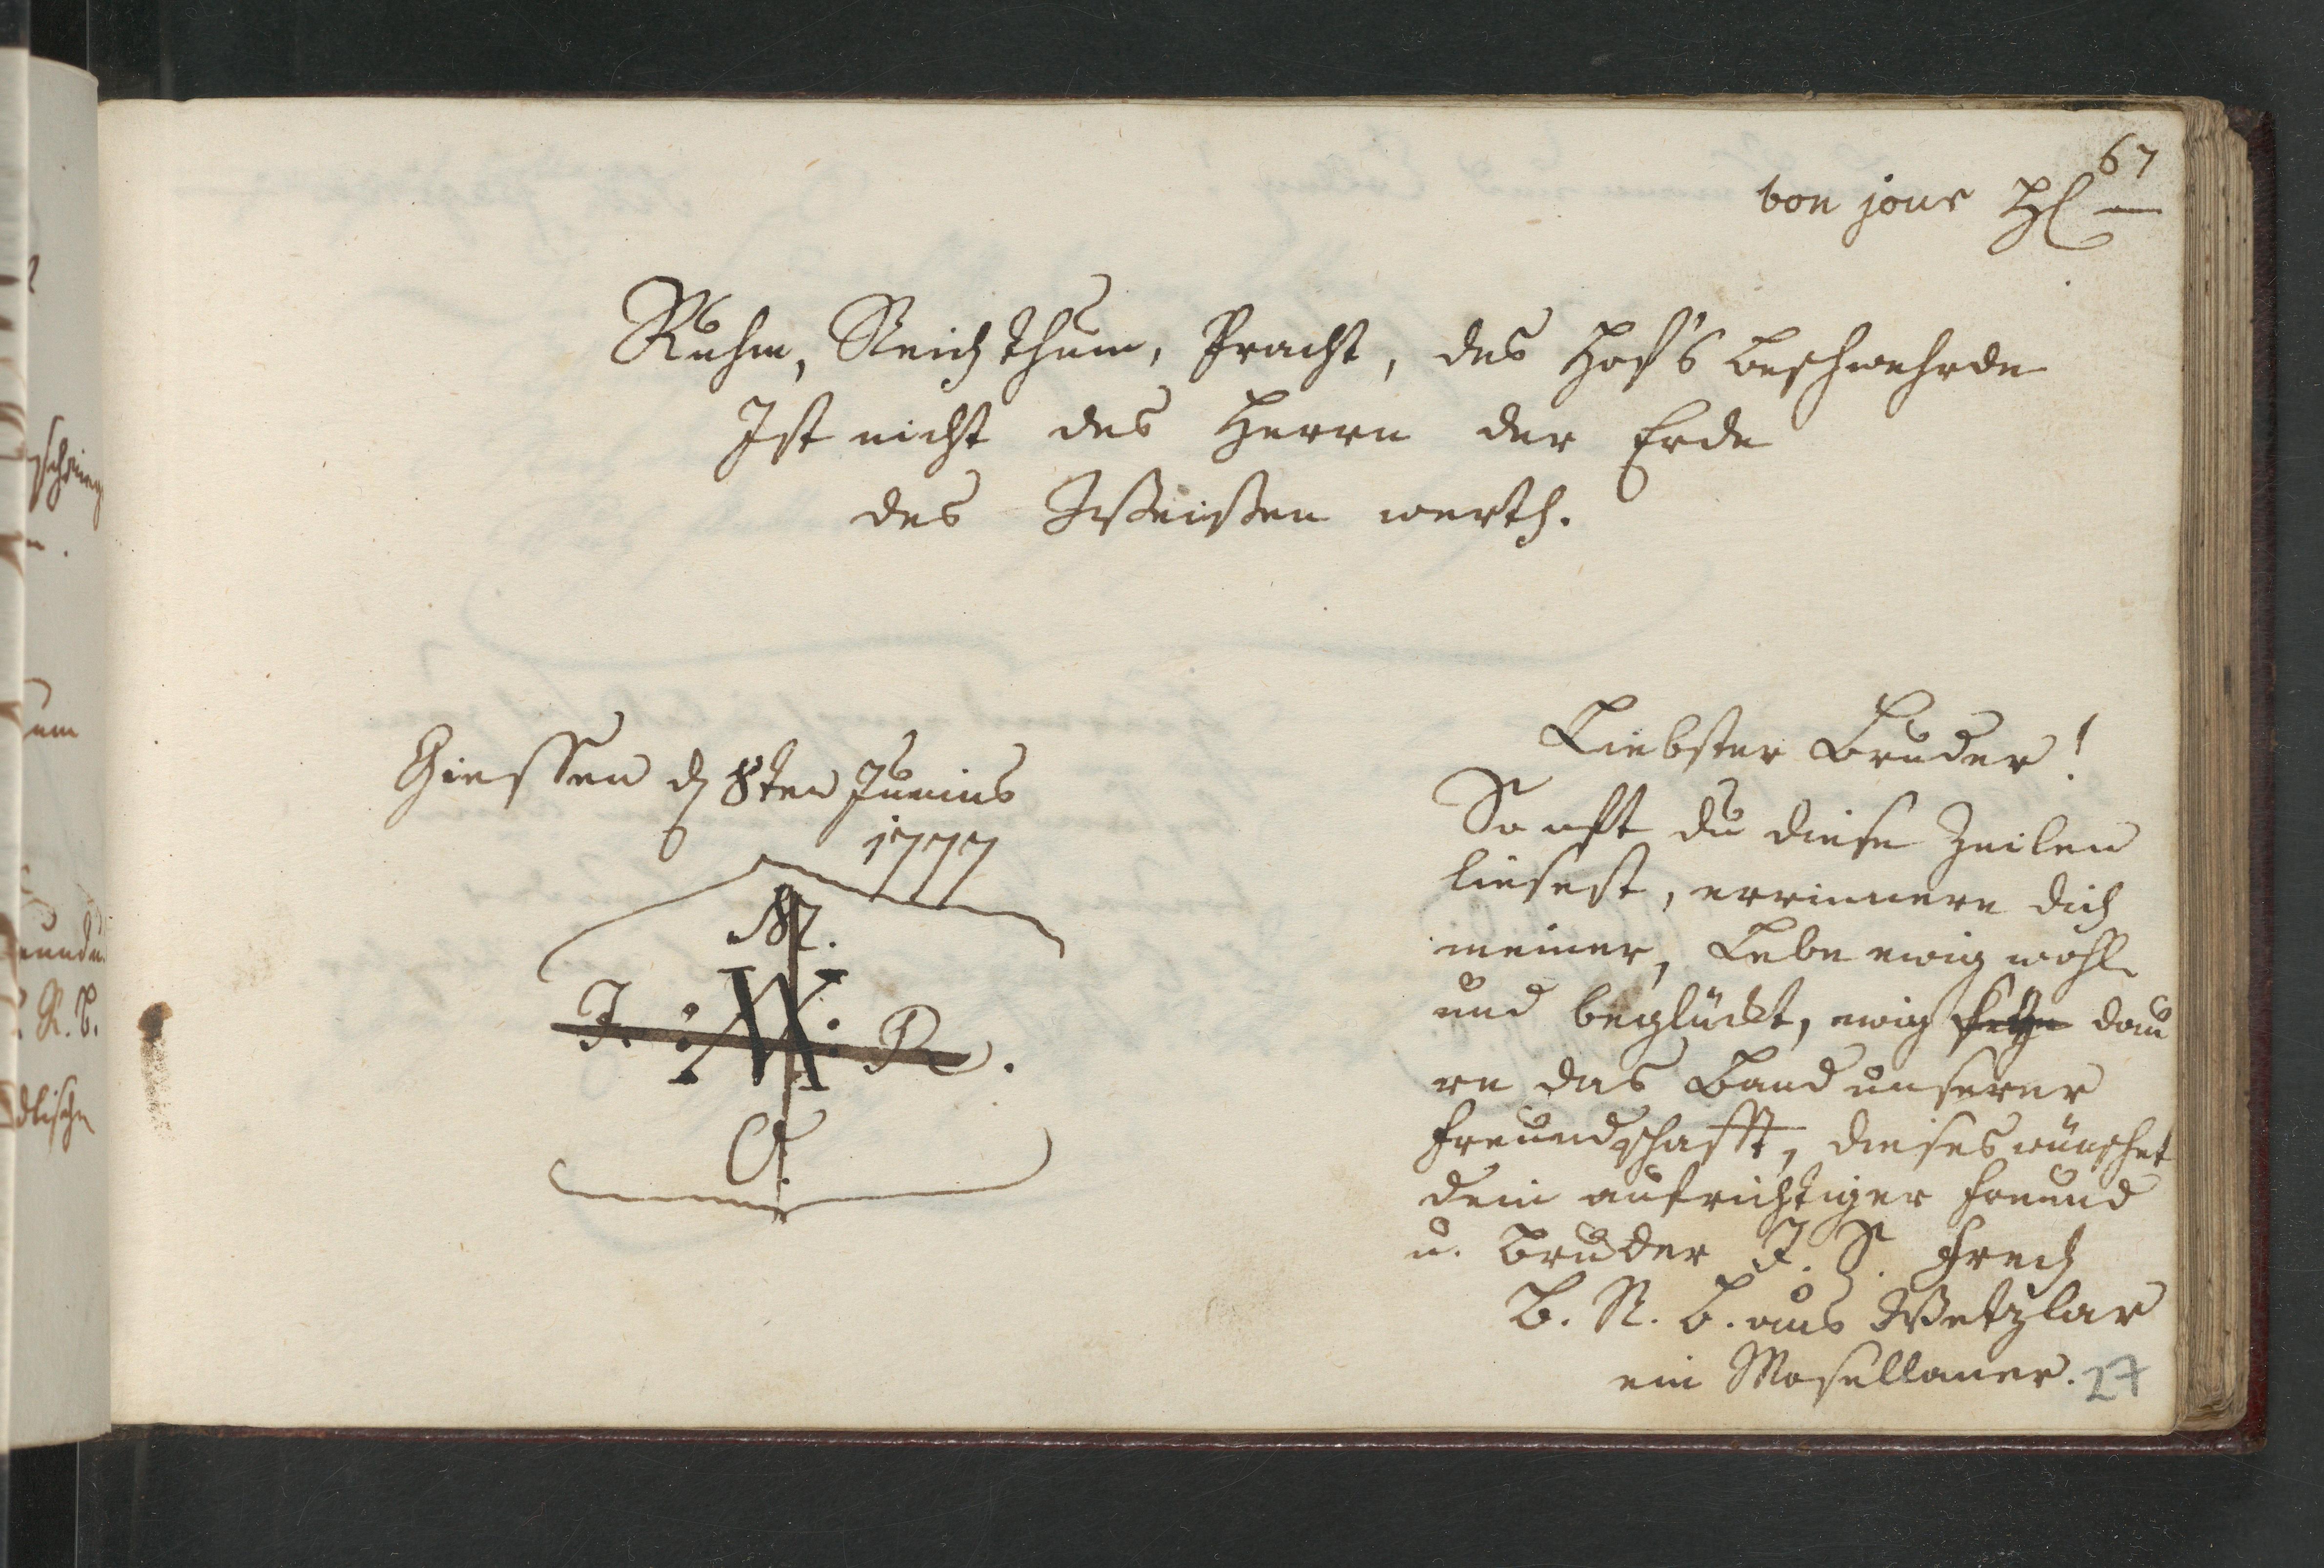 67
bon jour H
Ruhm, Reichthum, Pracht, des Hof's beschwehrde
Ist nicht des Herrn der Erde
des Weisen werth.
Giessen d 8ten Junius
1777
J. W. R.
Liebster Bruder!
So oft du diese Zeilen
liesest, errinnere dich
meiner, Lebe ewig wohl
und beglückt, ewig dau
re das Band unserer
Freundschafft, dieses wünschet
dein aufrichtiger Freund
u. Bruder J. S. Frech
B. R. B. aus Wetzlar
ein Mosellaner.
27